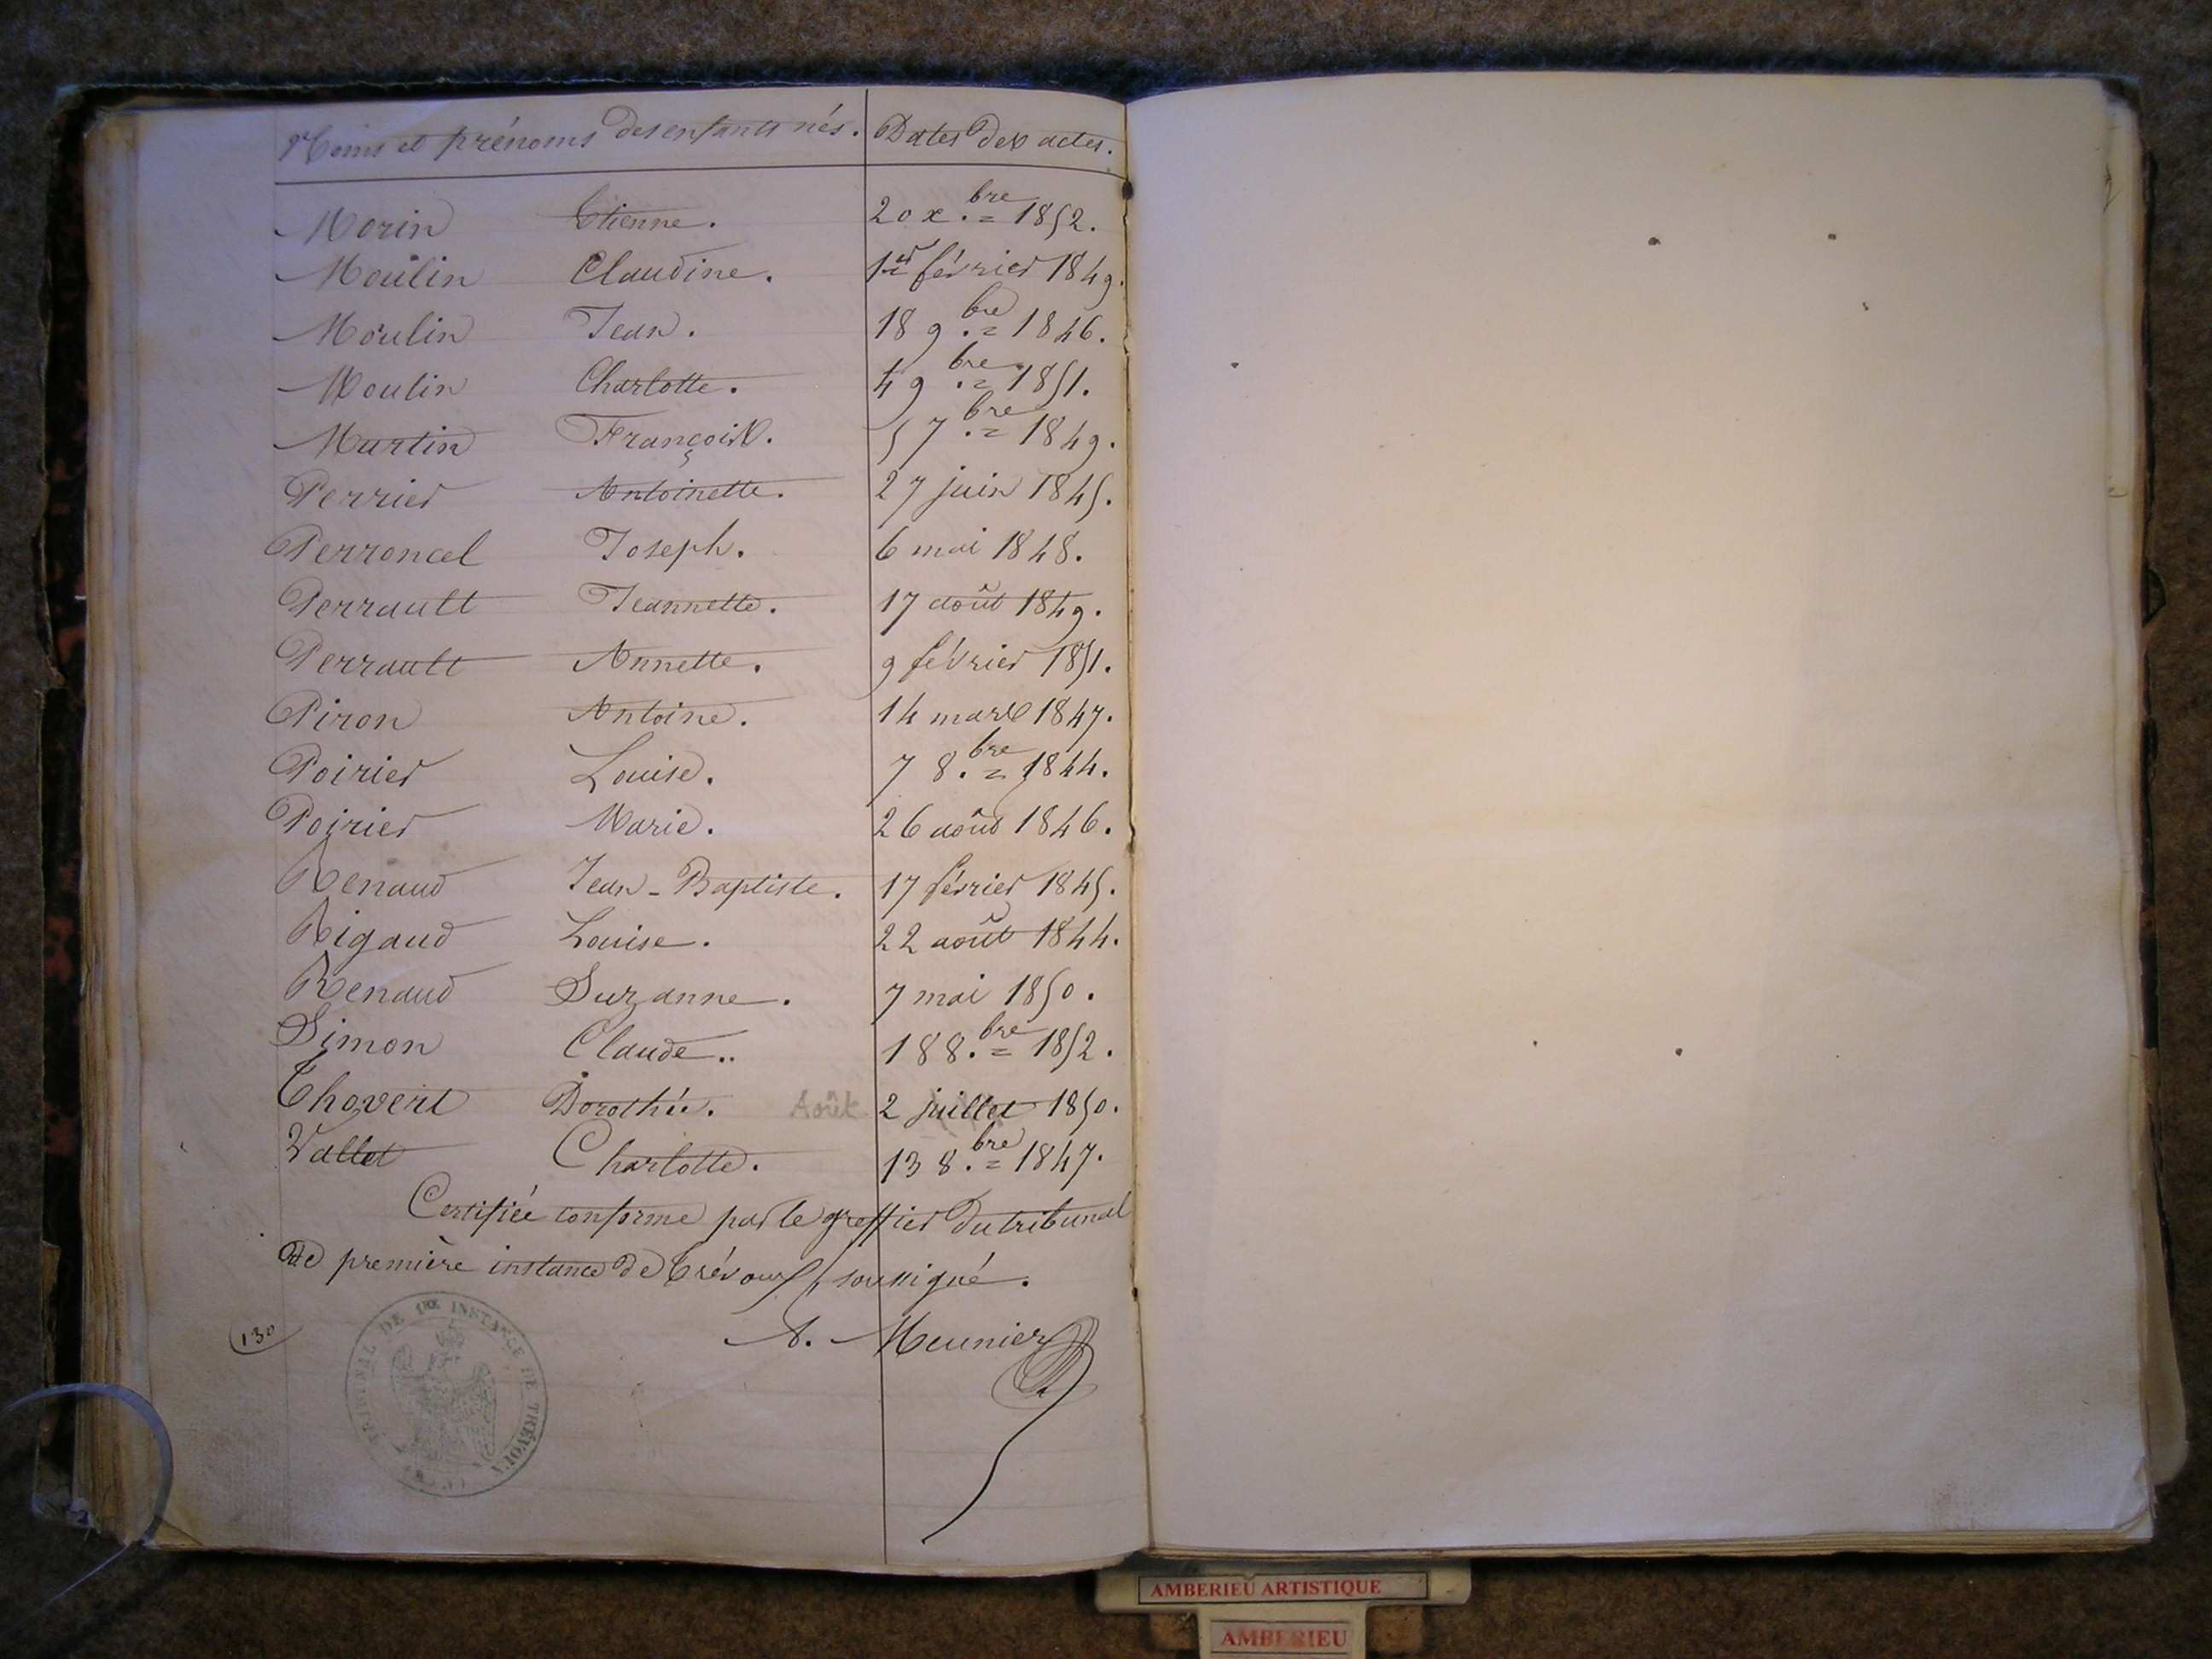 Noms et prénoms des enfants nés. Dates des actes.
Morin Etienne. 20 x.bre 1852.
Moulin Claudine. 1er février 1849.
Moulin Jean. 18 9.bre 1846.
Moulin Charlotte. 4 9.bre 1851.
Martin François. 5 7.bre 1849.
Perrier Antoinette. 27 juin 1845.
Perroncel Joseph. 6 mai 1848.
Perrault Jeannette. 17 août 1849.
Perrault Annette. 9 février 1851.
Piron Antoine. 14 mars 1847.
Poirier Louise. 7 8.bre 1844.
Poirier Marie. 26 août 1846.
Renaud Jean-Baptiste. 17 février 1845.
Rigaud Louise. 22 août 1844.
Renaud Suzanne. 7 mai 1850.
Simon Claude.. 18 8.bre 1852.
Thovert Dorothée. Août 2 juillet 1850.
Vallet Charlotte. 13 8.bre 1847.
Certifiée conforme par le greffier du tribunal
de première instance de Trévoux, soussigné.
A. Meunier
130
TRIBUNAL DE 1RE INSTANCE DE TRÉVOUX
AMBERIEU ARTISTIQUE
AMBERIEU